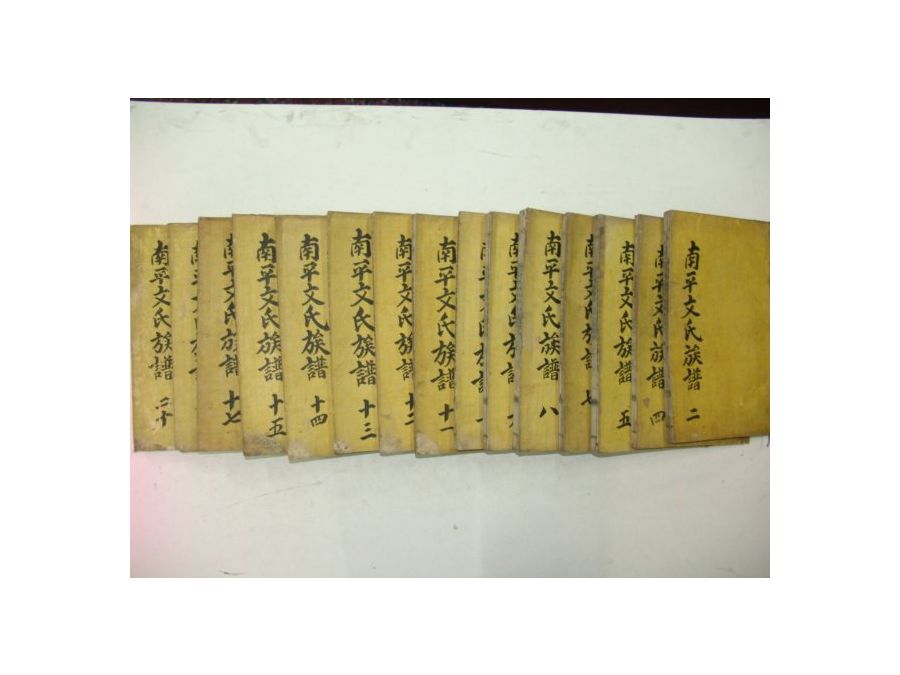 南平文氏族譜 二
南平文氏族譜 四
南平文氏族譜 五
南平文氏族譜 七
南平文氏族譜 八
南平文氏族譜
南平文氏族譜
南平文氏族譜 十一
南平文氏族譜 十二
南平文氏族譜 十三
南平文氏族譜 十四
南平文氏族譜 十五
南平文氏族譜 十七
南平文氏族
南平文氏族譜 二十